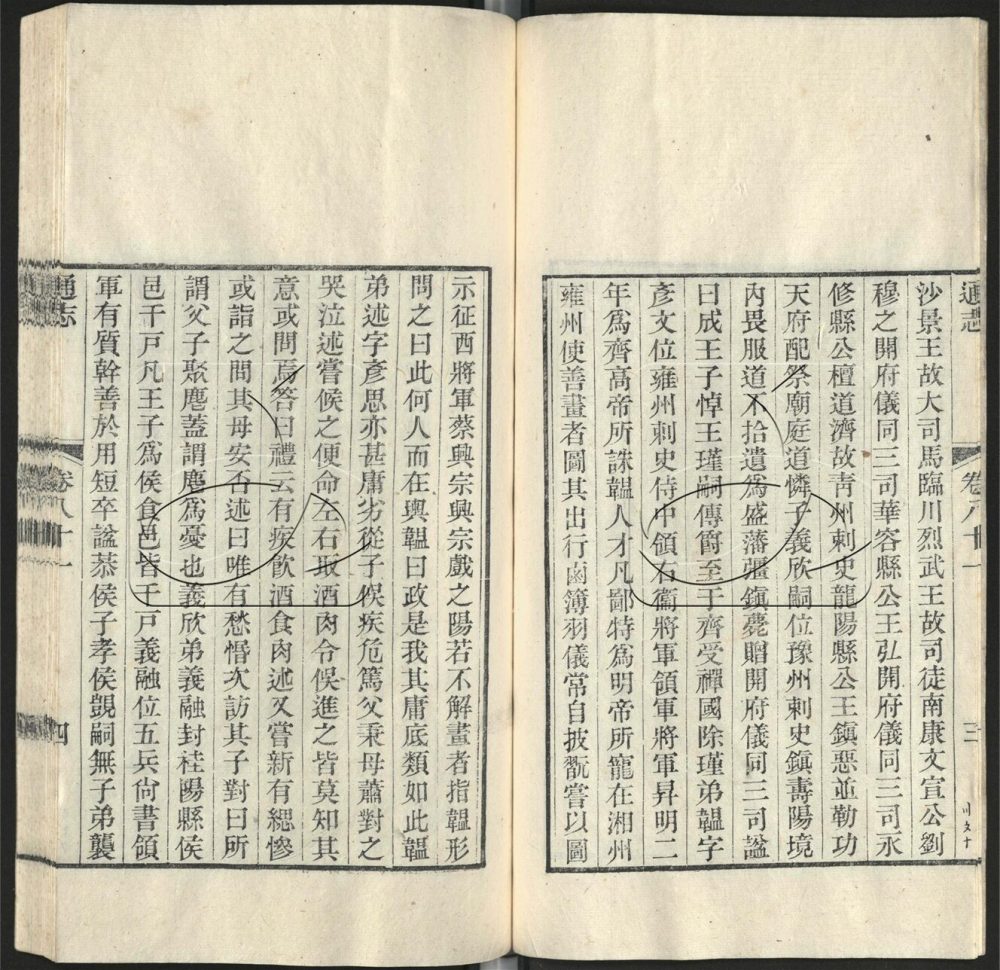 通志
卷八十一
三
沙景王故大司馬臨川烈武王故司徒南康文宣公劉
穆之開府儀同三司華容縣公王弘開府儀同三司永
修縣公檀道濟故靑州刺史龍陽縣公王鎭惡並勒功
天府配祭廟庭道憐子義欣嗣位豫州刺史鎭壽陽境
內畏服道不拾遺爲盛藩彊鎭薨贈開府儀同三司諡
曰成王子悼王瑾嗣傳爵至于齊受禪國除瑾弟韞字
彥文位雍州刺史侍中領右衞將軍領軍將軍昇明二
年爲齊高帝所誅韞人才凡鄙特爲明帝所寵在湘州
雍州使善畫者圖其出行鹵簿羽儀常自披翫嘗以圖
示征西將軍蔡興宗興宗戲之陽若不解畫者指韞形
問之曰此何人而在輿韞曰政是我其庸底類如此韞
弟述字彥思亦甚庸劣從子俁疾危篤父秉母蕭對之
哭泣述嘗候之便命左右取酒肉令俁進之皆莫知其
意或問焉答曰禮云有疾飮酒食肉述又嘗新有緦慘
或詣之問其母安否述曰唯有愁惛次訪其子對曰所
謂父子聚麀蓋謂麀爲憂也義欣弟義融封桂陽縣侯
邑千戸凡王子爲侯食邑皆千戸義融位五兵尙書領
軍有質幹善於用短卒諡恭侯子孝侯覬嗣無子弟襲
通志
卷八十一
四